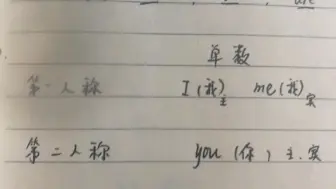 单数
第一人称 I(我)主 me(我)宾
第二人称 you(你)主.宾